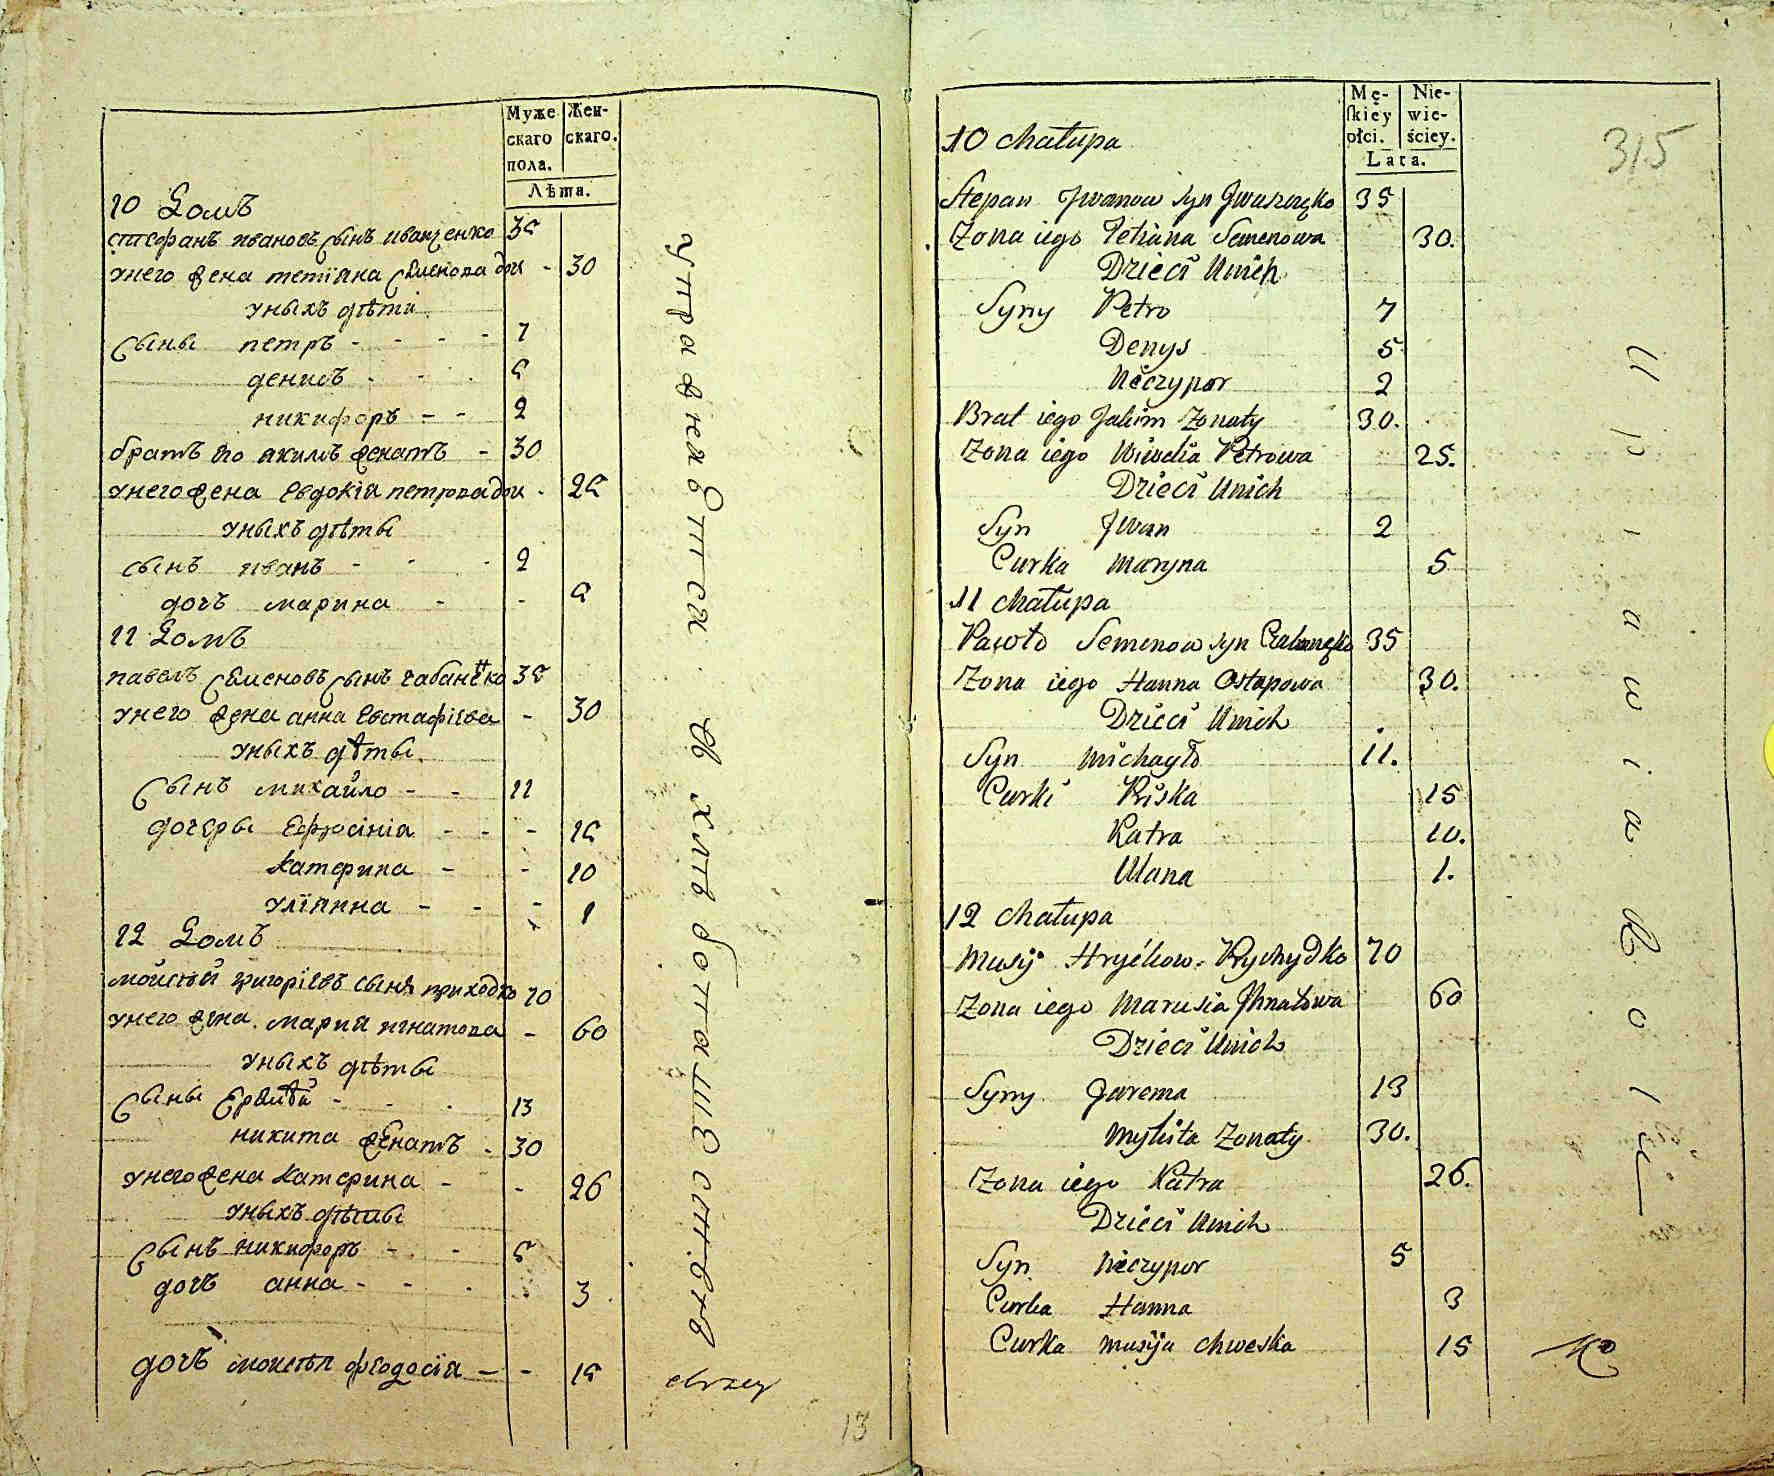 Муже
скаго
пола.
Жен-
скаго.
Лѣта.
10 Домъ
стефанъ ивановъ сынъ иванченко 35
унего жена тетіана семенова дчи - 30
уныхъ дѣти
сыны петръ - - - - 7
денисъ - - - 5
никифоръ - - 2
братъ его якимъ женатъ - 30
унего жена евдокія петрова дчи - 25
уныхъ дѣты
сынъ иванъ - - - 2
дочъ марина - - 5
11 Домъ
павелъ семеновъ сынъ чабаненко 35
унего жена анна евстафіева - 30
уныхъ дѣты
сынъ михайло - - 11
дочеры ефросинія - - - 15
катерина - - 10
уліянна - - - 1
12 Домъ
мойсей григоріевъ сынъ приходко 70
унего жена марія игнатова - 60
уныхъ дѣты
сыны еремѣй - - - 13
никита женатъ - 30
унего жена катерина - - 26
уныхъ дѣты
сынъ никифоръ - - 5
дочъ анна - - - 3
дочъ мойсея феодосія - - 15
13
Mę-
ſkiey
płci.
Nie-
wie-
ściey.
Lata.
315
10 chałupa
Stepan Jwanow syn Jwaszczęko 35
Zona iego Tetiana Semenowa 30.
Dzieci Unich
Syny Petro 7
Denys 5
Neczypor 2
Brat iego Jakim Zonaty 30.
Zona iego Wiwdia Petrowa 25.
Dzieci Unich
Syn Jwan 2
Curka Maryna 5
11 chałupa
Pawło Semenow syn Czabanęko 35
Zona iego Hanna Ostapowa 30.
Dzieci Unich
Syn Michayło 11.
Curki Priska 15
Katra 10.
Ulana 1.
12 chałupa
Musij Hryćkow Prychydko 70
Zona iego Marusia Jhnatowa 60
Dzieci Unich
Syny Jarema 13
Mykita Zonaty 30.
Zona iego Katra 26.
Dzieci Unich
Syn Neczypor 5
Curka Hanna 3
Curka Musija Chweska 15